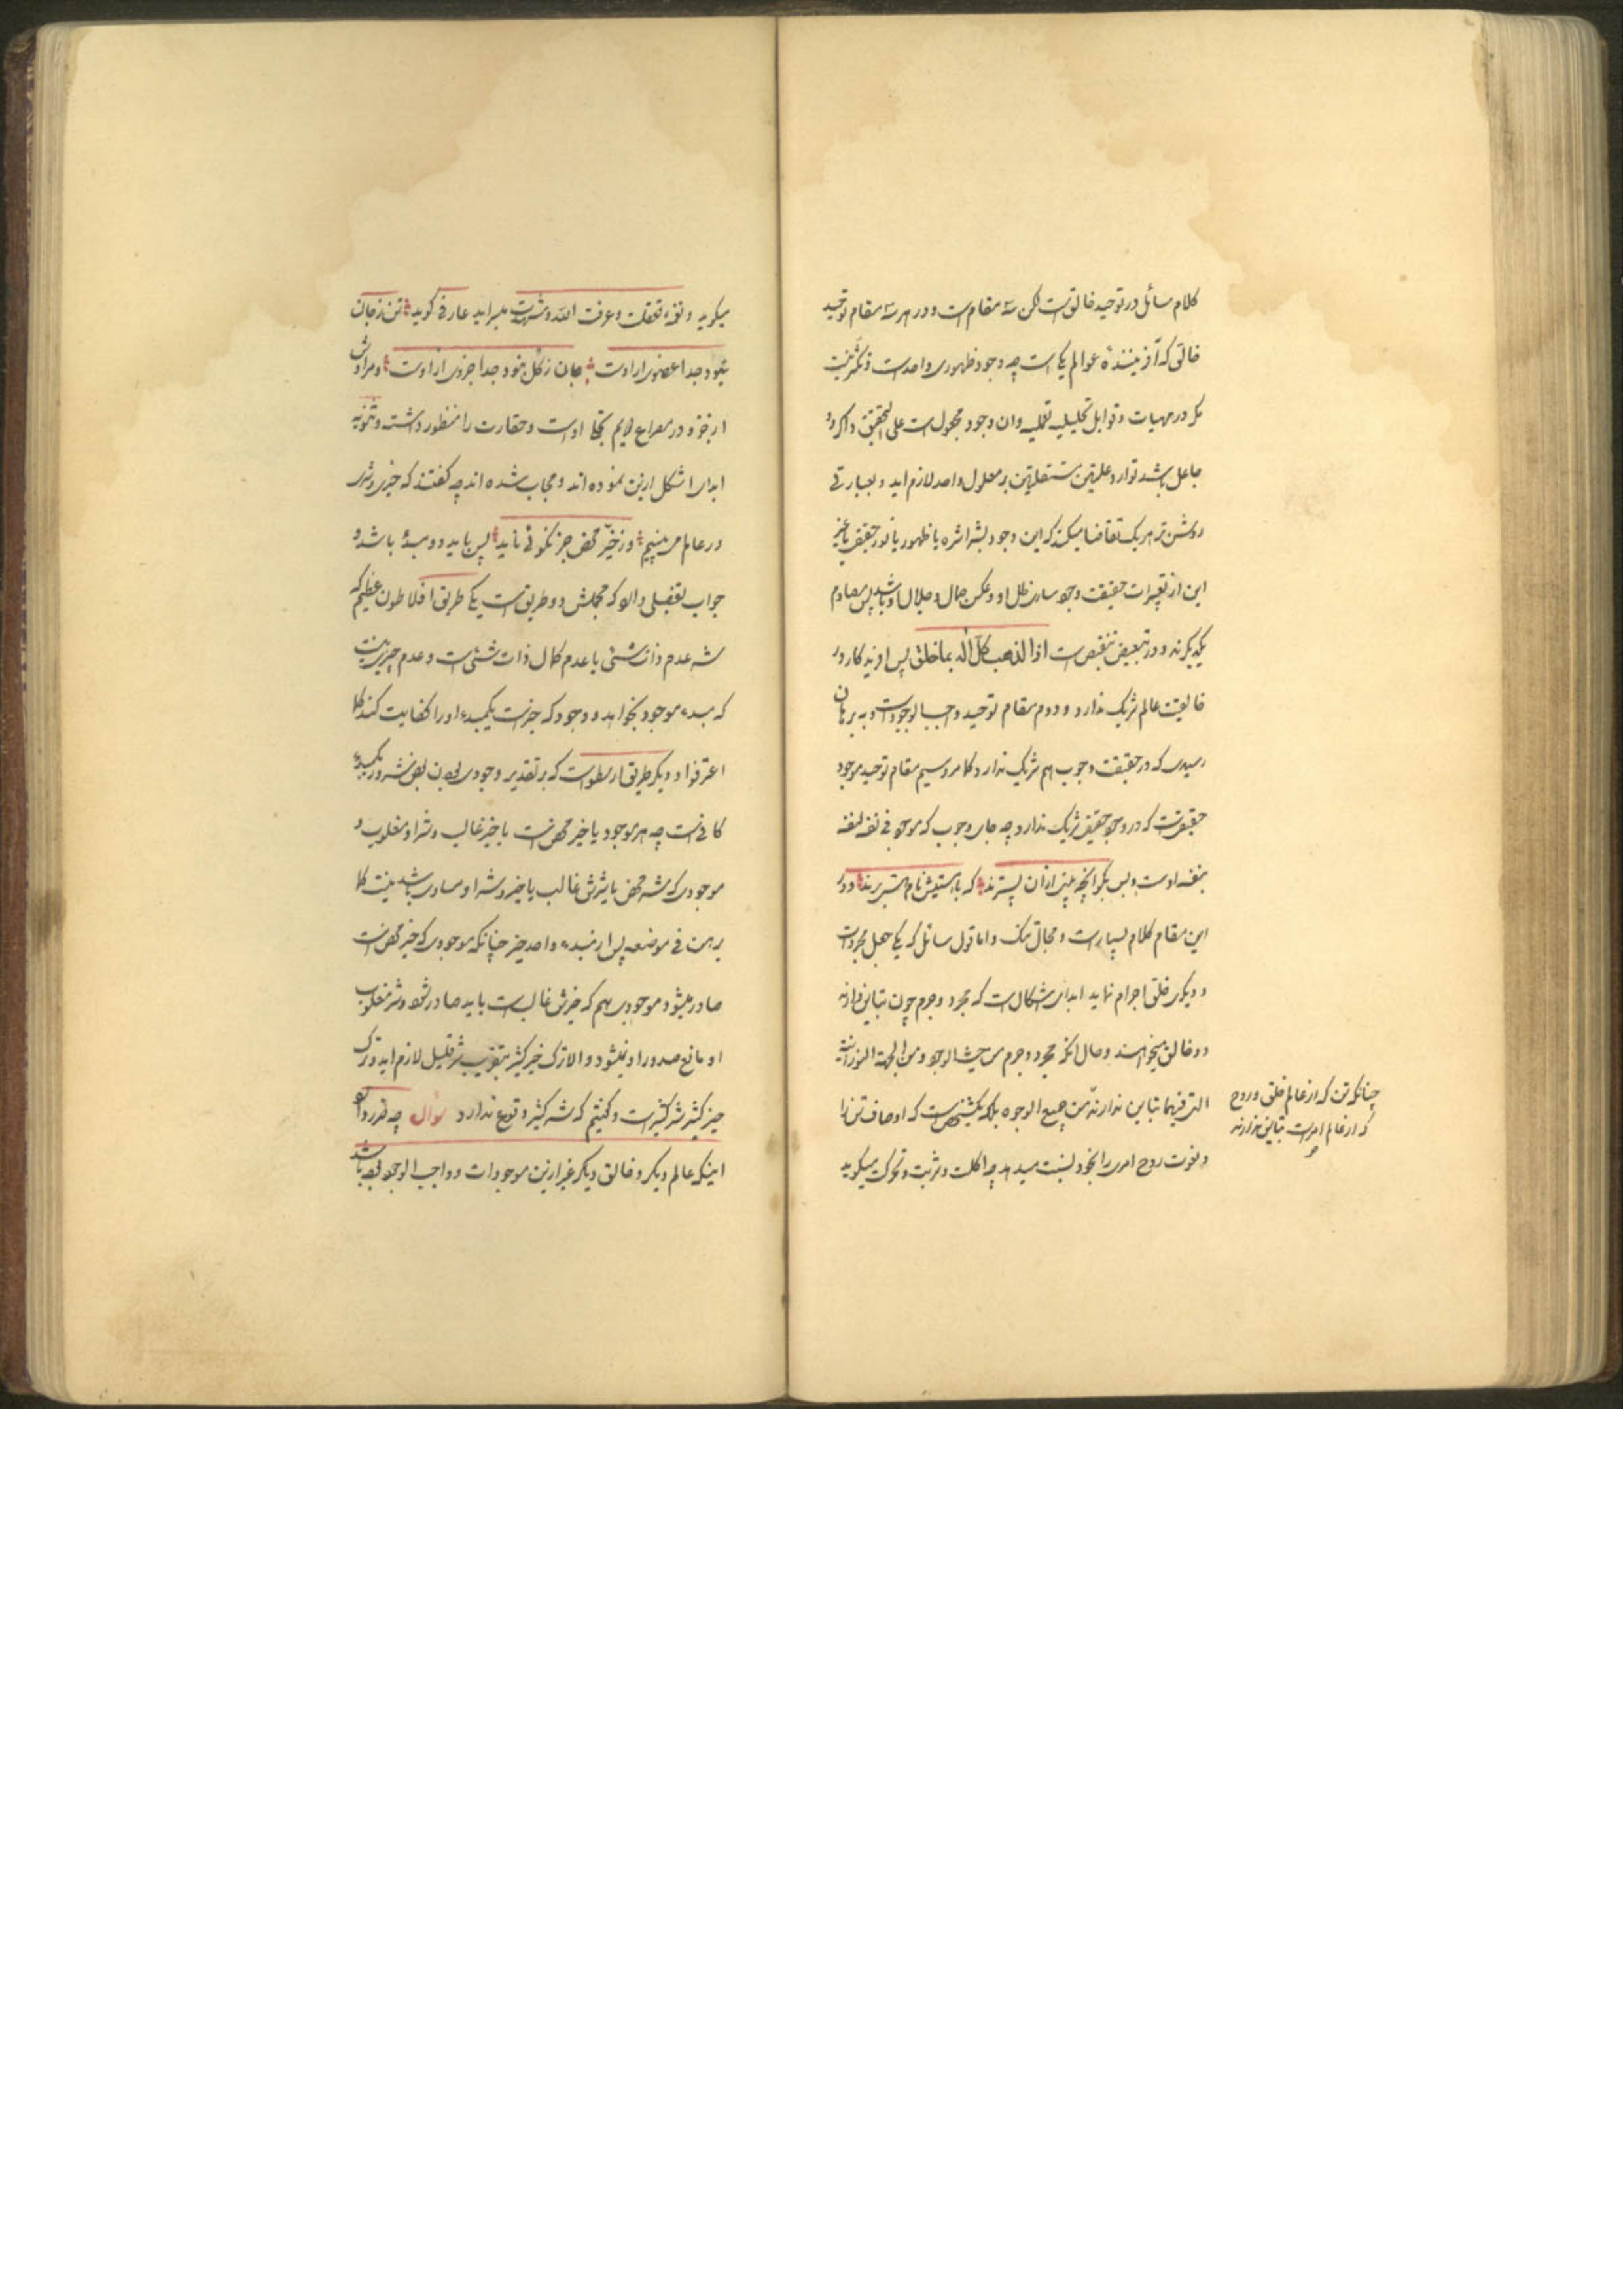 کلام سائل در توحید خالق است لکن سه مقام است و در هر سه مقام توحید
خالقی که آفریننده عوالم یکی است چه وجود ظهوری واحد است و تکثر نیست
مگر در مهیات و قوابل تحلیلیه تعملیه وان وجود مجعول است علی التحقیق و اگر دو
جاعل باشد توارد علتین مستقلتین بر معلول واحد لازم اید و بعبارتی
روشن تر هر یک تقاضا میکند که این وجود بشراشره یا ظهور یا نور حقیقی یا غیر
این از تعبیرات حقیقت وجود ساری ظل او و عکس جمال و جلال او باشد پس مصادم
یکدیگرند و در تبعیض تنقیص است اذا لذهب کل اله بما خلق پس اوزیدکار در
خالقیت عالم شریک ندارد و دوم مقام توحید واجب الوجود است و به برهان
رسیدی که در حقیقت وجوب هم شریک ندارد کما مر و سیم مقام توحید موجود
حقیقی است که در وجود حقیقی شریک ندارد چه جای وجوب که موجود فی نفسه لنفسه
بنفسه اوست و بس بگو انچه بیش از آن نیستند که با هستیش نام هستی برند و در
این مقام کلام بسیار است و مجال تنگ و اما قول سائل که یکی جعل مجردات
و دیگری خلق اجرام نماید ابدای اشکال است که مجرد و جرم چون تباین دارند
دو خالق میخواهند و حال آنکه مجرد و جرم من حیث الوجود و من الجهة النورانیة
التی فیهما تباین ندارند من جمیع الوجوه بلکه یکشخص است که اوصاف تن را
و نعوت روح امری را بخود نسبت میدهد چه اکلت و شربت و تحرکت میگوید
چنانکه تن که از عالم خلق و روح
که از عالم امر است تباین ندارند
میگوید و نیز تعقلت و عرفت الله و شهدت میسراید عارفی گوید تن ز جان
نبود جدا عضوی از اوست جان ز کل نبود جدا جزوی از اوست و مرادش
از جزو در مصراع دویم تجلی اوست و حقارت را منظور داشته و ثنویه
ابدای اشکال ازین نموده اند و مجاب شده اند چه گفتند که خیری و شری
در عالم می بینیم و ز خیر محض جز نکوئی ناید پس باید دو مبدء باشد و
جواب تفصیلی دادند که مجملش دو طریق است یکی طریق افلاطون عظیم که
شر عدم ذات شئی یا عدم کمال ذات شئی است و عدم چیزی نیست
که مبدء موجود بخواهد و وجود که خیر است یکمبدء او را کفایت کند کما
اعترفوا و دیگر طریق ارسطو است که بر تقدیر وجودی بودن بعض شرور یکمبدء
کافی است چه هر موجود یا خیر محض است یا خیر غالب و شر او مغلوب و
موجودی که شر محض یا شرش غالب یا خیر و شر او مساوی باشد نیست کما
برهن فی موضعه پس از مبدء واحد خیر چنانکه موجودی که خیر محض است
صادر میشود موجودی هم که خیرش غالب است باید صادر شود و شر مغلوب
او مانع صدور او نمیشود و الا ترک خیر کثیر بتقریب شر قلیل لازم اید و ترک
خیر کثیر شر کثیر است و گفتیم که شر کثیر وقوع ندارد سؤال چه ضرر دارد
اینکه عالم دیگر و خالق دیگر غیر ازین موجودات و واجب الوجود بوده باشد